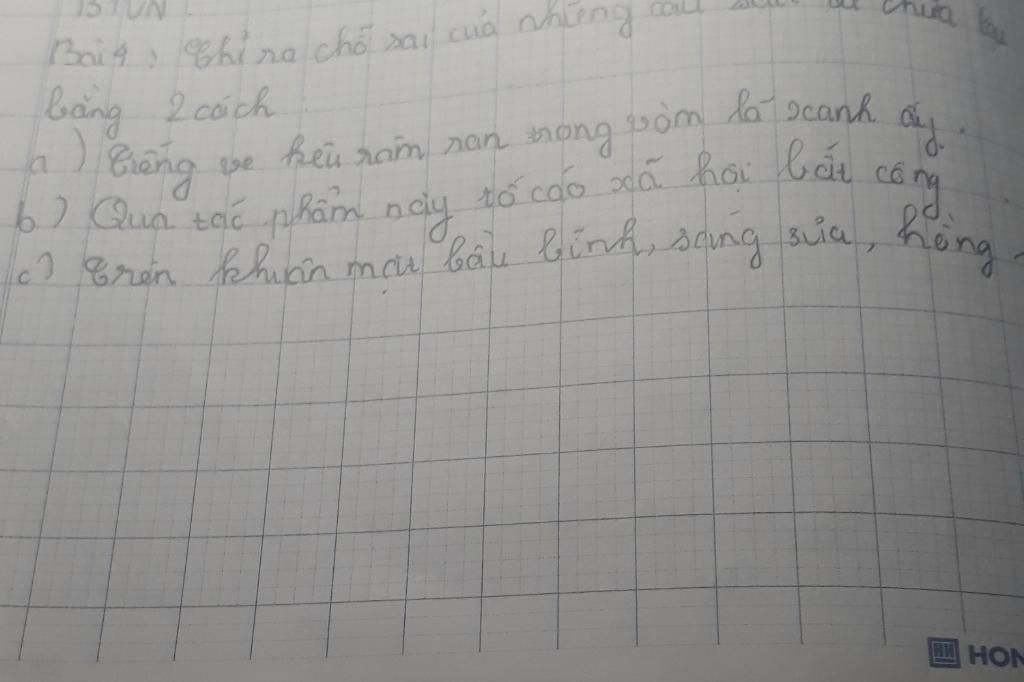 Bài 4: Chỉ ra chỗ sai của những câu sau chữa
bằng 2 cách
a) Tiếng ve kêu râm ran trong vòm lá xanh ấy.
b) Qua tác phẩm này tố cáo xã hội bất công
c) Trên khuôn mặt bầu bĩnh, sáng sủa, hồng
HON